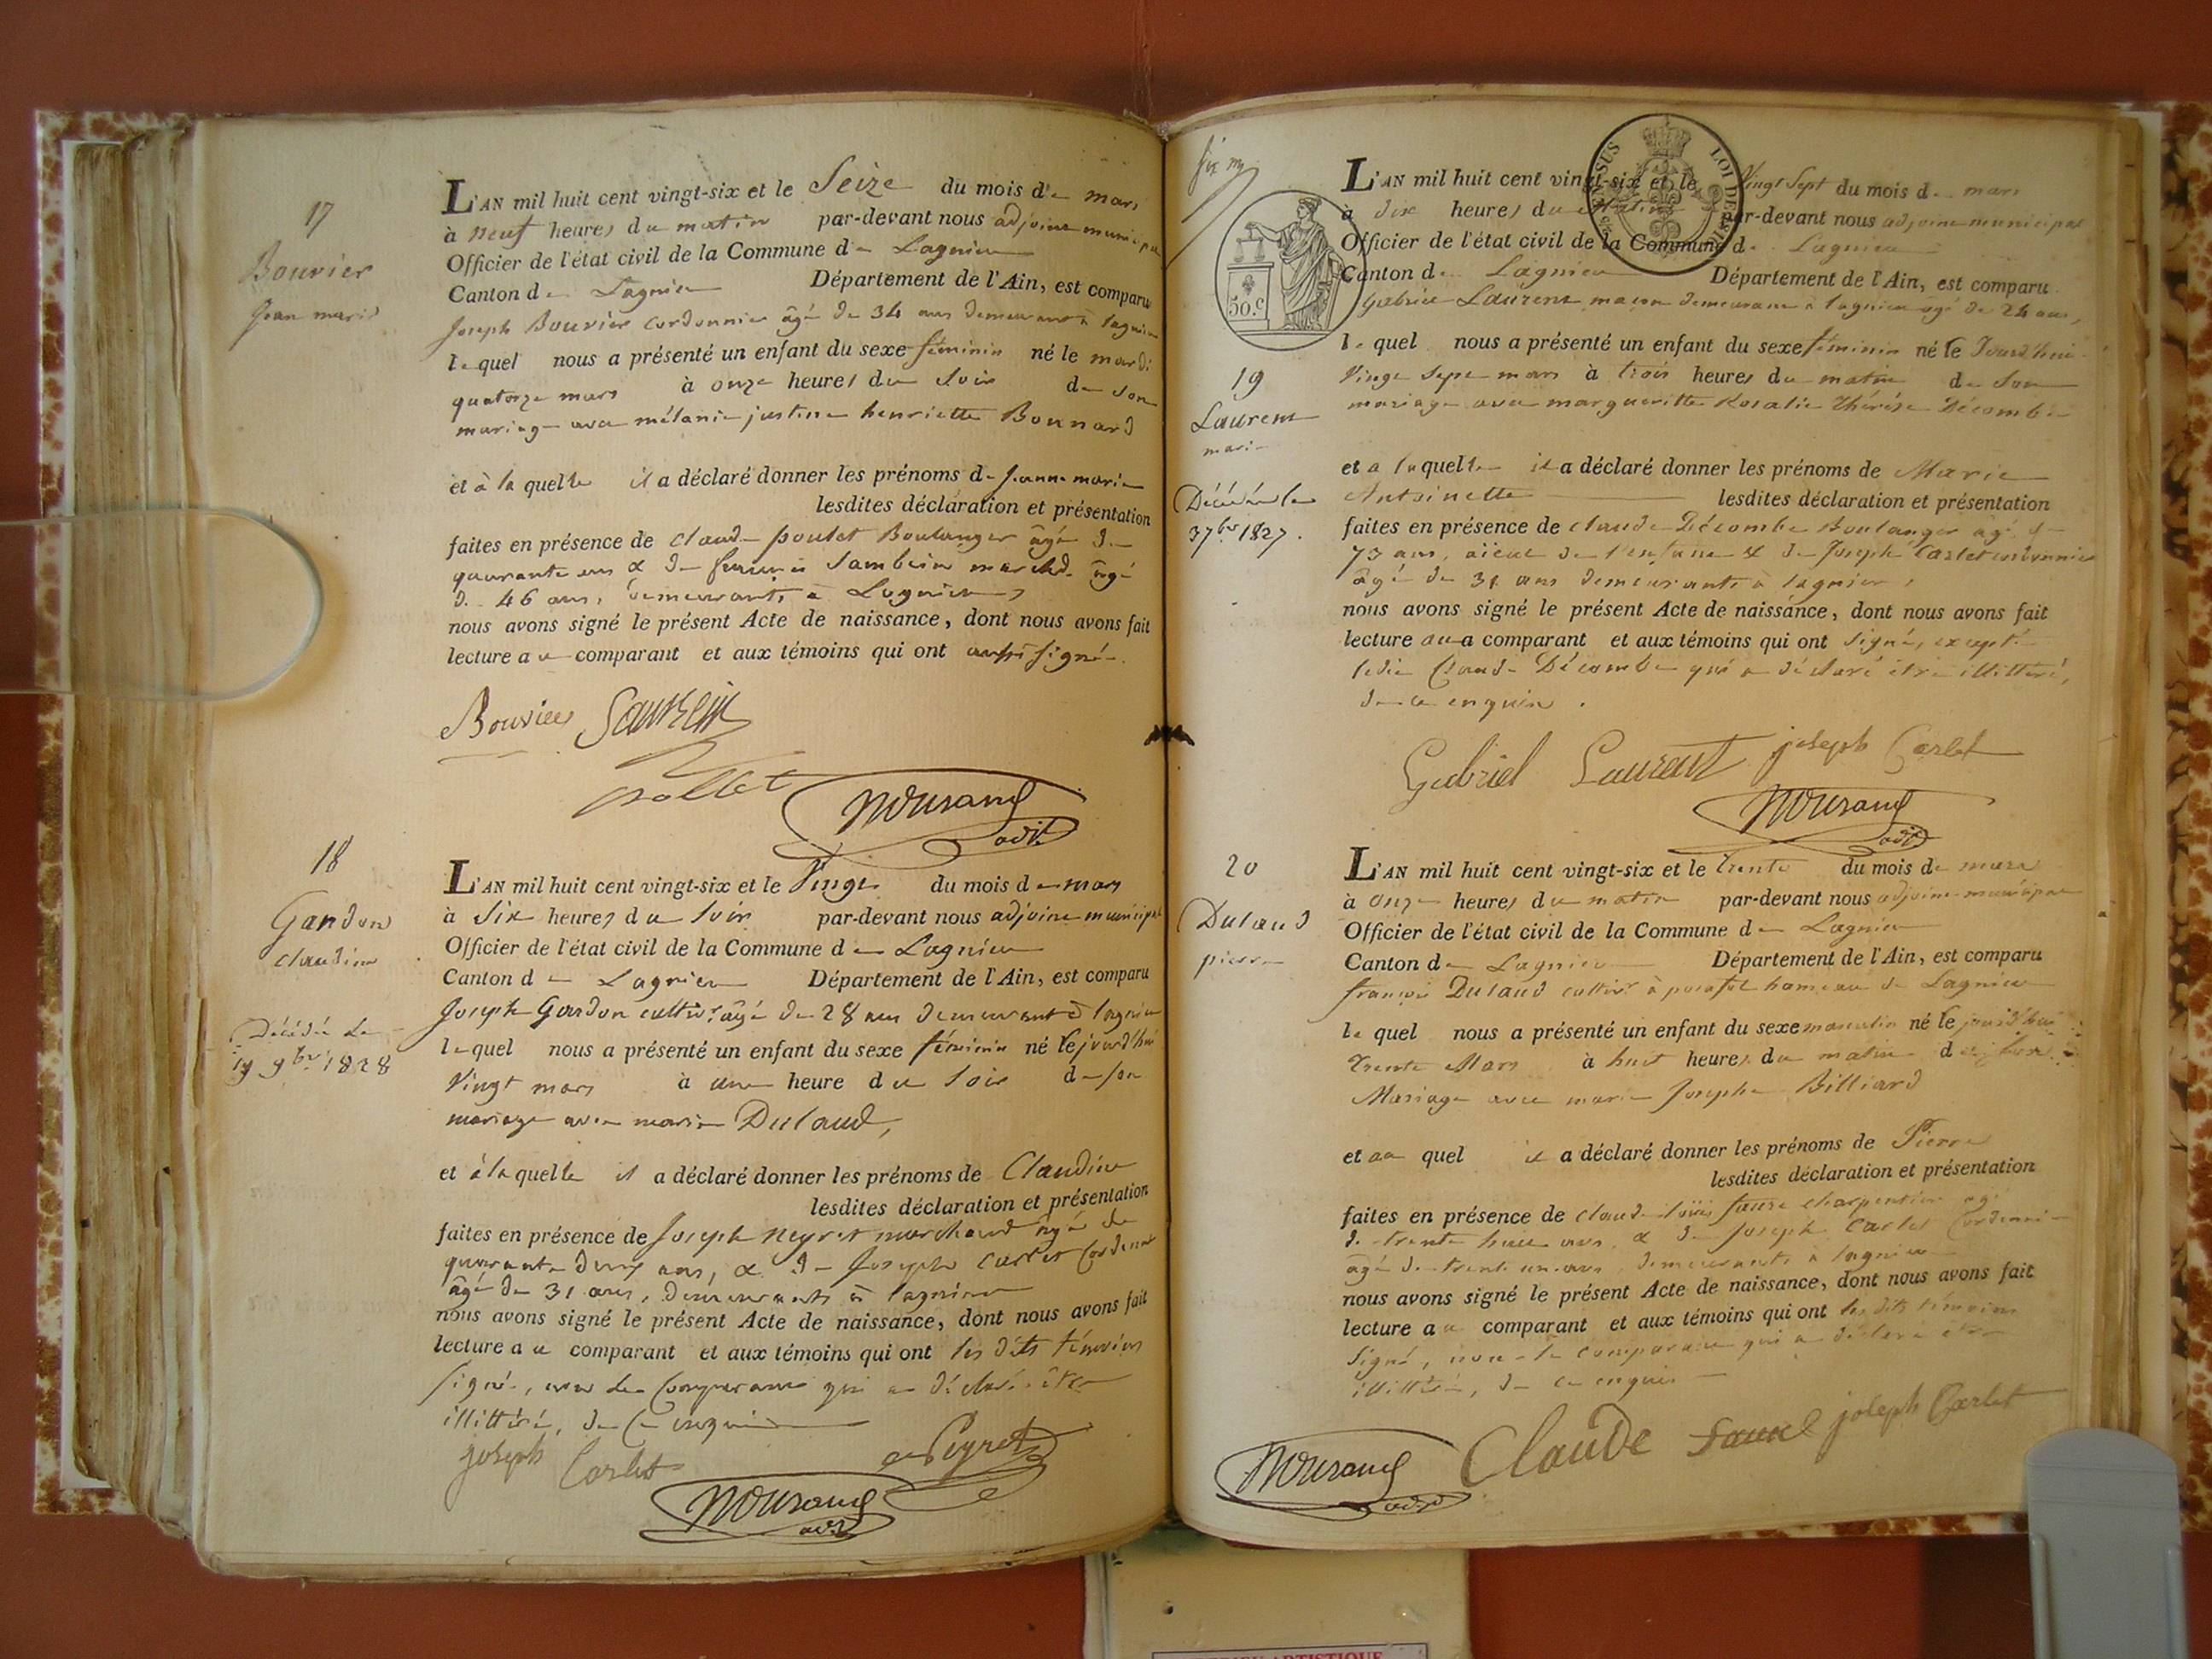 17
Bouvier
Jean marie
L'AN mil huit cent vingt-six et le Seize du mois de mars
à neuf heures du matin par-devant nous adjoint municipal
Officier de l'état civil de la Commune de Lagnieu
Canton de Lagnieu Département de l'Ain, est comparu
Joseph Bouvier Cordonnier âgé de 34 ans demeurant à lagnieu
lequel nous a présenté un enfant du sexe féminin né le mardi
quatorze mars à onze heures du Soir de son
mariage avec mélanie justine henriette Bonnard
et à laquelle il a déclaré donner les prénoms de Jeanne marie
lesdites déclaration et présentation
faites en présence de Claude poulet Boulanger âgé de
quarante ans & de Sambein marchd. âgé
de 46 ans, demeurants à Lagnieu
nous avons signé le présent Acte de naissance, dont nous avons fait
lecture au comparant et aux témoins qui ont aussi signé.
Bouvier
18
Gandon
claudine
Décédée le
19 9bre 1828
L'AN mil huit cent vingt-six et le Vingt du mois de mars
à Six heures du Soir par-devant nous adjoint municipal
Officier de l'état civil de la Commune de Lagnieu
Canton de Lagnieu Département de l'Ain, est comparu
Joseph Gandon cultivr. âgé de 28 ans demeurant à lagnieu
lequel nous a présenté un enfant du sexe féminin né le jourd'hui
Vingt mars à une heure du Soir de son
mariage avec marie Dulaud,
et à laquelle il a déclaré donner les prénoms de Claudine
lesdites déclaration et présentation
faites en présence de Joseph Neyret marchand âgé de
quarante deux ans, & de Joseph Carlet Cordonnier
âgé de 31 ans, demeurants à lagnieu
nous avons signé le présent Acte de naissance, dont nous avons fait
lecture au comparant et aux témoins qui ont les dits témoins
signé, non le Comparant qui a déclaré être
illittéré, de ce enquis
joseph Carlet Neyret
L'AN mil huit cent vingt-six et le Vingt Sept du mois de mars
à dix heures du matin par-devant nous adjoint municipal
Officier de l'état civil de la Commune de Lagnieu
Canton de Lagnieu Département de l'Ain, est comparu
Gabriel Laurent maçon demeurant à lagnieu âgé de 24 ans,
lequel nous a présenté un enfant du sexe féminin né le Jourd'hui
Vingt Sept mars à trois heures du matin de Son
mariage avec margueritte Rosalie Thérèse Décombe
50.c
19
Laurent
marie
Décédée le
3 7bre 1827.
et a laquelle il a déclaré donner les prénoms de Marie
Antoinette lesdites déclaration et présentation
faites en présence de claude Décombe Boulanger âgé de
73 ans, aïeul de l'enfant & de Joseph Carlet cordonnier
âgé de 31 ans demeurants à lagnieu,
nous avons signé le présent Acte de naissance, dont nous avons fait
lecture au comparant et aux témoins qui ont signé, excepté
ledit Claude Décombe qui a déclaré être illittéré,
de ce enquis.
Gabriel Laurent joseph Carlet
20
Dulaud
pierre
L'AN mil huit cent vingt-six et le trente du mois de mars
à onze heures du matin par-devant nous adjoint municipal
Officier de l'état civil de la Commune de Lagnieu
Canton de Lagnieu Département de l'Ain, est comparu
françois Dulaud cultivr. à posafol hameau de Lagnieu
lequel nous a présenté un enfant du sexe masculin né le jourd'hui
trente Mars à huit heures du matin de son
Mariage avec marie Josephe Billiard
et au quel il a déclaré donner les prénoms de Pierre
lesdites déclaration et présentation
faites en présence de claude louis faure charpentier âgé
de trente huit ans & de Joseph Carlet Cordonnier
âgé de trente un ans demeurants à lagnieu
nous avons signé le présent Acte de naissance, dont nous avons fait
lecture au comparant et aux témoins qui ont les dits témoins
signé, non le comparant qui a déclaré être
illittéré, de ce enquis
Claude faure joseph Carlet